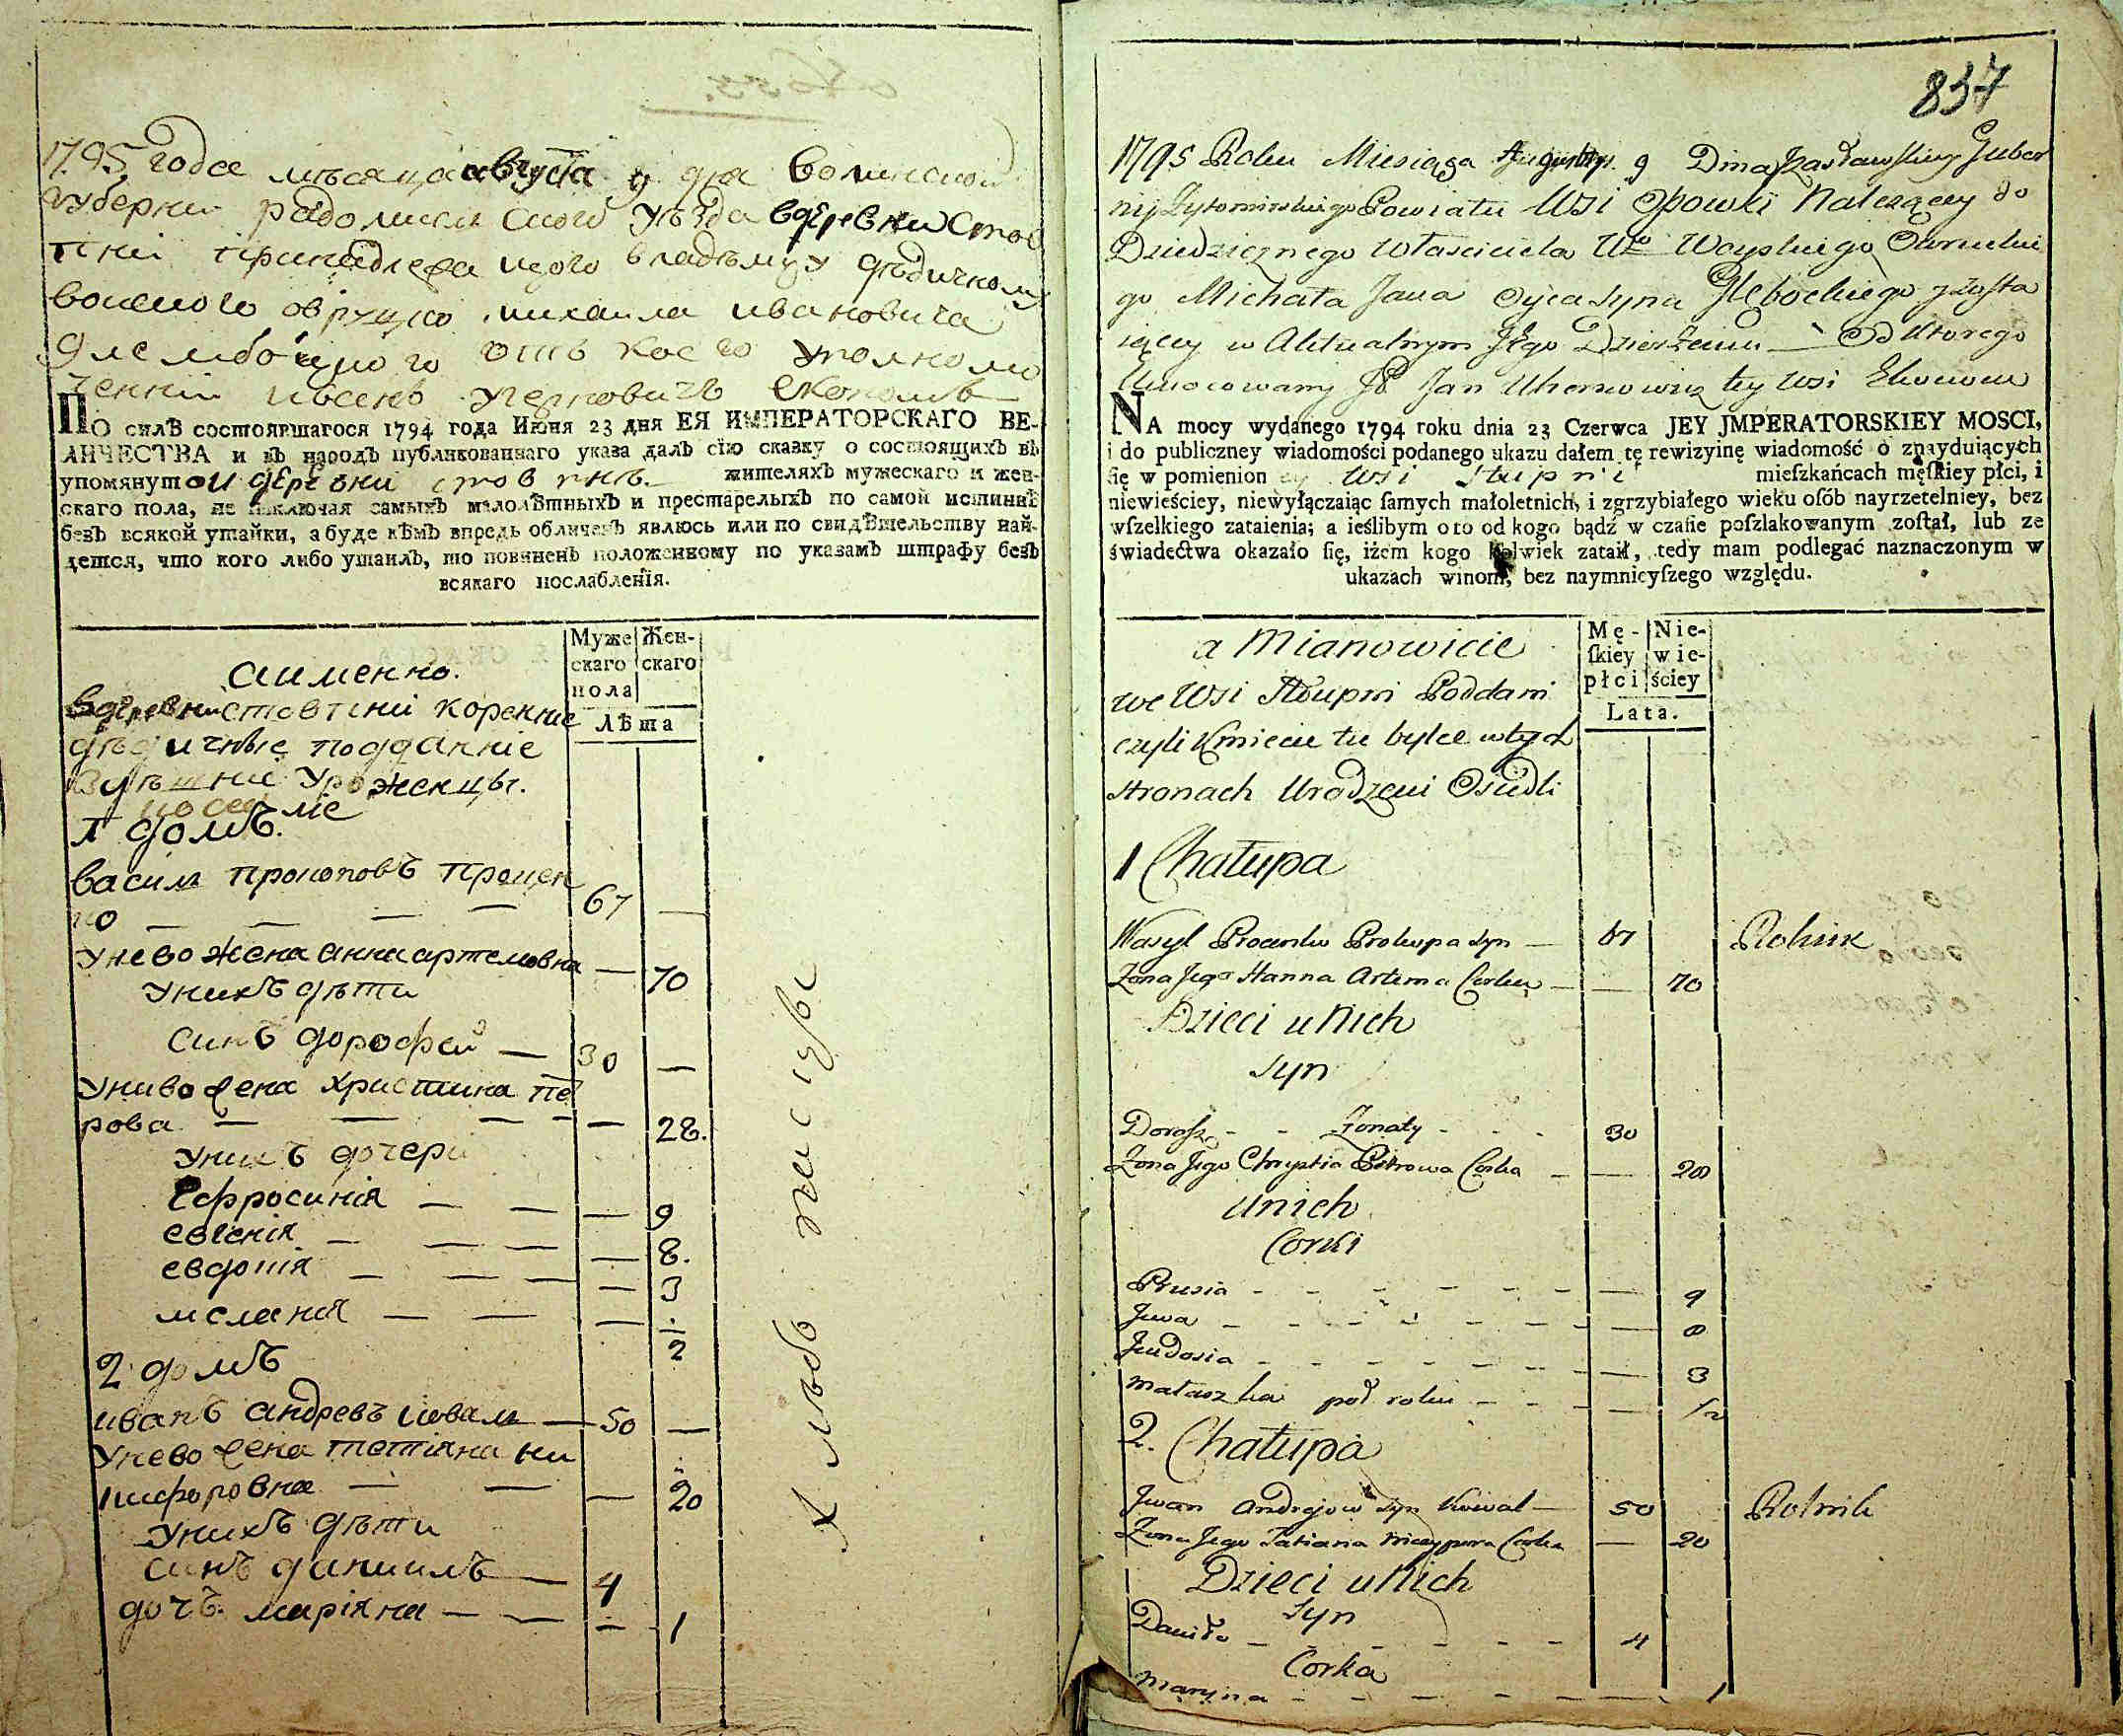 1795 годсе мѣсяца августа 9 дня волинской
губернии радомисльского уѣзда вдеревни Стов
пни принадлежащого владѣмуу дѣдичному
овруцко михаила ивановича
отъ коего уполномо
ченнии
ПО силѢ состоявшагося 1794 года Июня 23 дня ЕЯ ИМПЕРАТОРСКАГО ВЕ-
ЛИЧЕСТВА и въ народЪ публикованнаго указа далЪ сїю сказку о состоящихЪ вЪ
упомянутой деревни стовпнѣ. жителяхЪ мужескаго и жен-
скаго пола, не изключая самыхЪ малолѢтныхЪ и престарелыхЪ по самой истиннѢ
безЪ всякой утайки, а буде кѢмЪ впредь обличенЪ явлюсь или по свидѢтельству най-
дется, что кого либо утаилЪ, то повиненЪ положенному по указамЪ штрафу безЪ
всякаго послабленїя.
Муже Жен-
скаго скаго
пола
ЛѢта
аименно.
вдеревни стовпни коренние
дѣдичные подданніе
здѣшніе уроженцы.
1 домъ.
василь прокоповъ процен
ко — — — — 67 —
унево жена анна артемовна — 70
унихъ дѣти
синъ дорофей — 30 —
униво жена христина пе
рова — — — — — 28.
унихъ дочери
ефросинія — — — 9
евгенія — — — — 8.
евдокія — — — — 3
меланія — — — 1/2
2 домъ
иванъ андревъ коваль — 50 —
унево жена тетіяна ни
кифоровна — — — 20
унихъ дѣти
синъ даниилъ — 4
дочъ. маріяна — — — 1
хлѣбо пашцы
837
1795 Roku Miesiąca Augusta 9 Dnia Izasławskiey Guber
nij Żytomirskiego Powiatu Wsi Opowki Nalezącey do
Dziedzicznego Własciciela Wo Woyskiego Owruckie
go Michała Jana Oyca syna Głębockiego zosta
iącey w Aktualnym Jego Dzierżeniu — Od ktorego
Umocowany JP Jan Uhernowicz tey wsi Ekonom
NA mocy wydanego 1794 roku dnia 23 Czerwca JEY JMPERATORSKIEY MOSCI,
i do publiczney wiadomości podanego ukazu dałem tę rewizyinę wiadomość o znayduiących
się w pomienion ey wsi Stupni mieſzkańcach męſkiey płci, i
niewieściey, niewyłączaiąc ſamych małoletnich, i zgrzybiałego wieku oſób nayrzetelniey, bez
wſzelkiego zataienia; a ieślibym o to od kogo bądź w czaſie poſzlakowanym zoſtał, lub ze
świadectwa okazało ſię, iżem kogo kolwiek zataił, tedy mam podlegać naznaczonym w
ukazach winom, bez naymnieyſzego względu.
Mę- Nie-
ſkiey wie-
płci ściey
Lata.
a Mianowicie
we Wsi Słupni Poddani
czyli Kmiecie tu bylce w tych
stronach Urodzeni Osiedli
1 Chałupa
Wasyl Procenko Prokopa syn — 67 Rolnik
Zona Jego Hanna Artema Corka — — 70
Dzieci u Nich
syn
Dorosz - - Zonaty - - - 30
Zona Jego Chrystia Petrowa Corka — — 28
unich
Corki
Prusia - - - - - — 9
Jewa - - - - - — 8
Jeudosia - - - - - — 3
Małaszka poł roku - - - — 1/2
2. Chałupa
Jwan Andrejow syn Kowal — 50 Rolnik
Zona Jego Tatiana Niczypora Corka — 20
Dzieci u Nich
syn
Daniło - - - - - 4
Corka
Maryna - - - - - 1